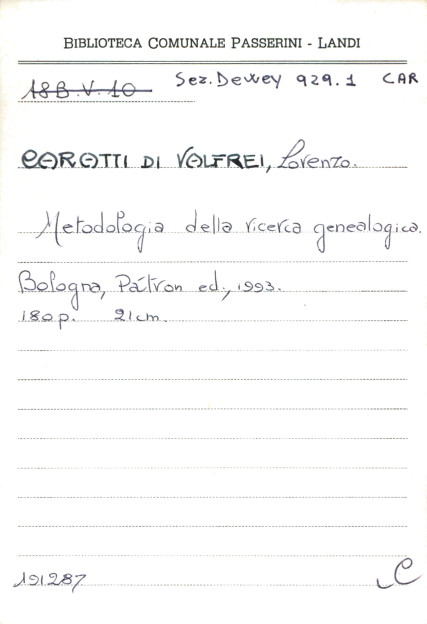 BIBLIOTECA COMUNALE PASSERINI - LANDI
18B.V.10 Sez. Dewey 929.1 CAR
CARATTI DI VALFREI, Lorenzo.
Metodologia della ricerca genealogica.
Bologna, Pátron ed., 1993.
180 p. 21 cm.
191287 C